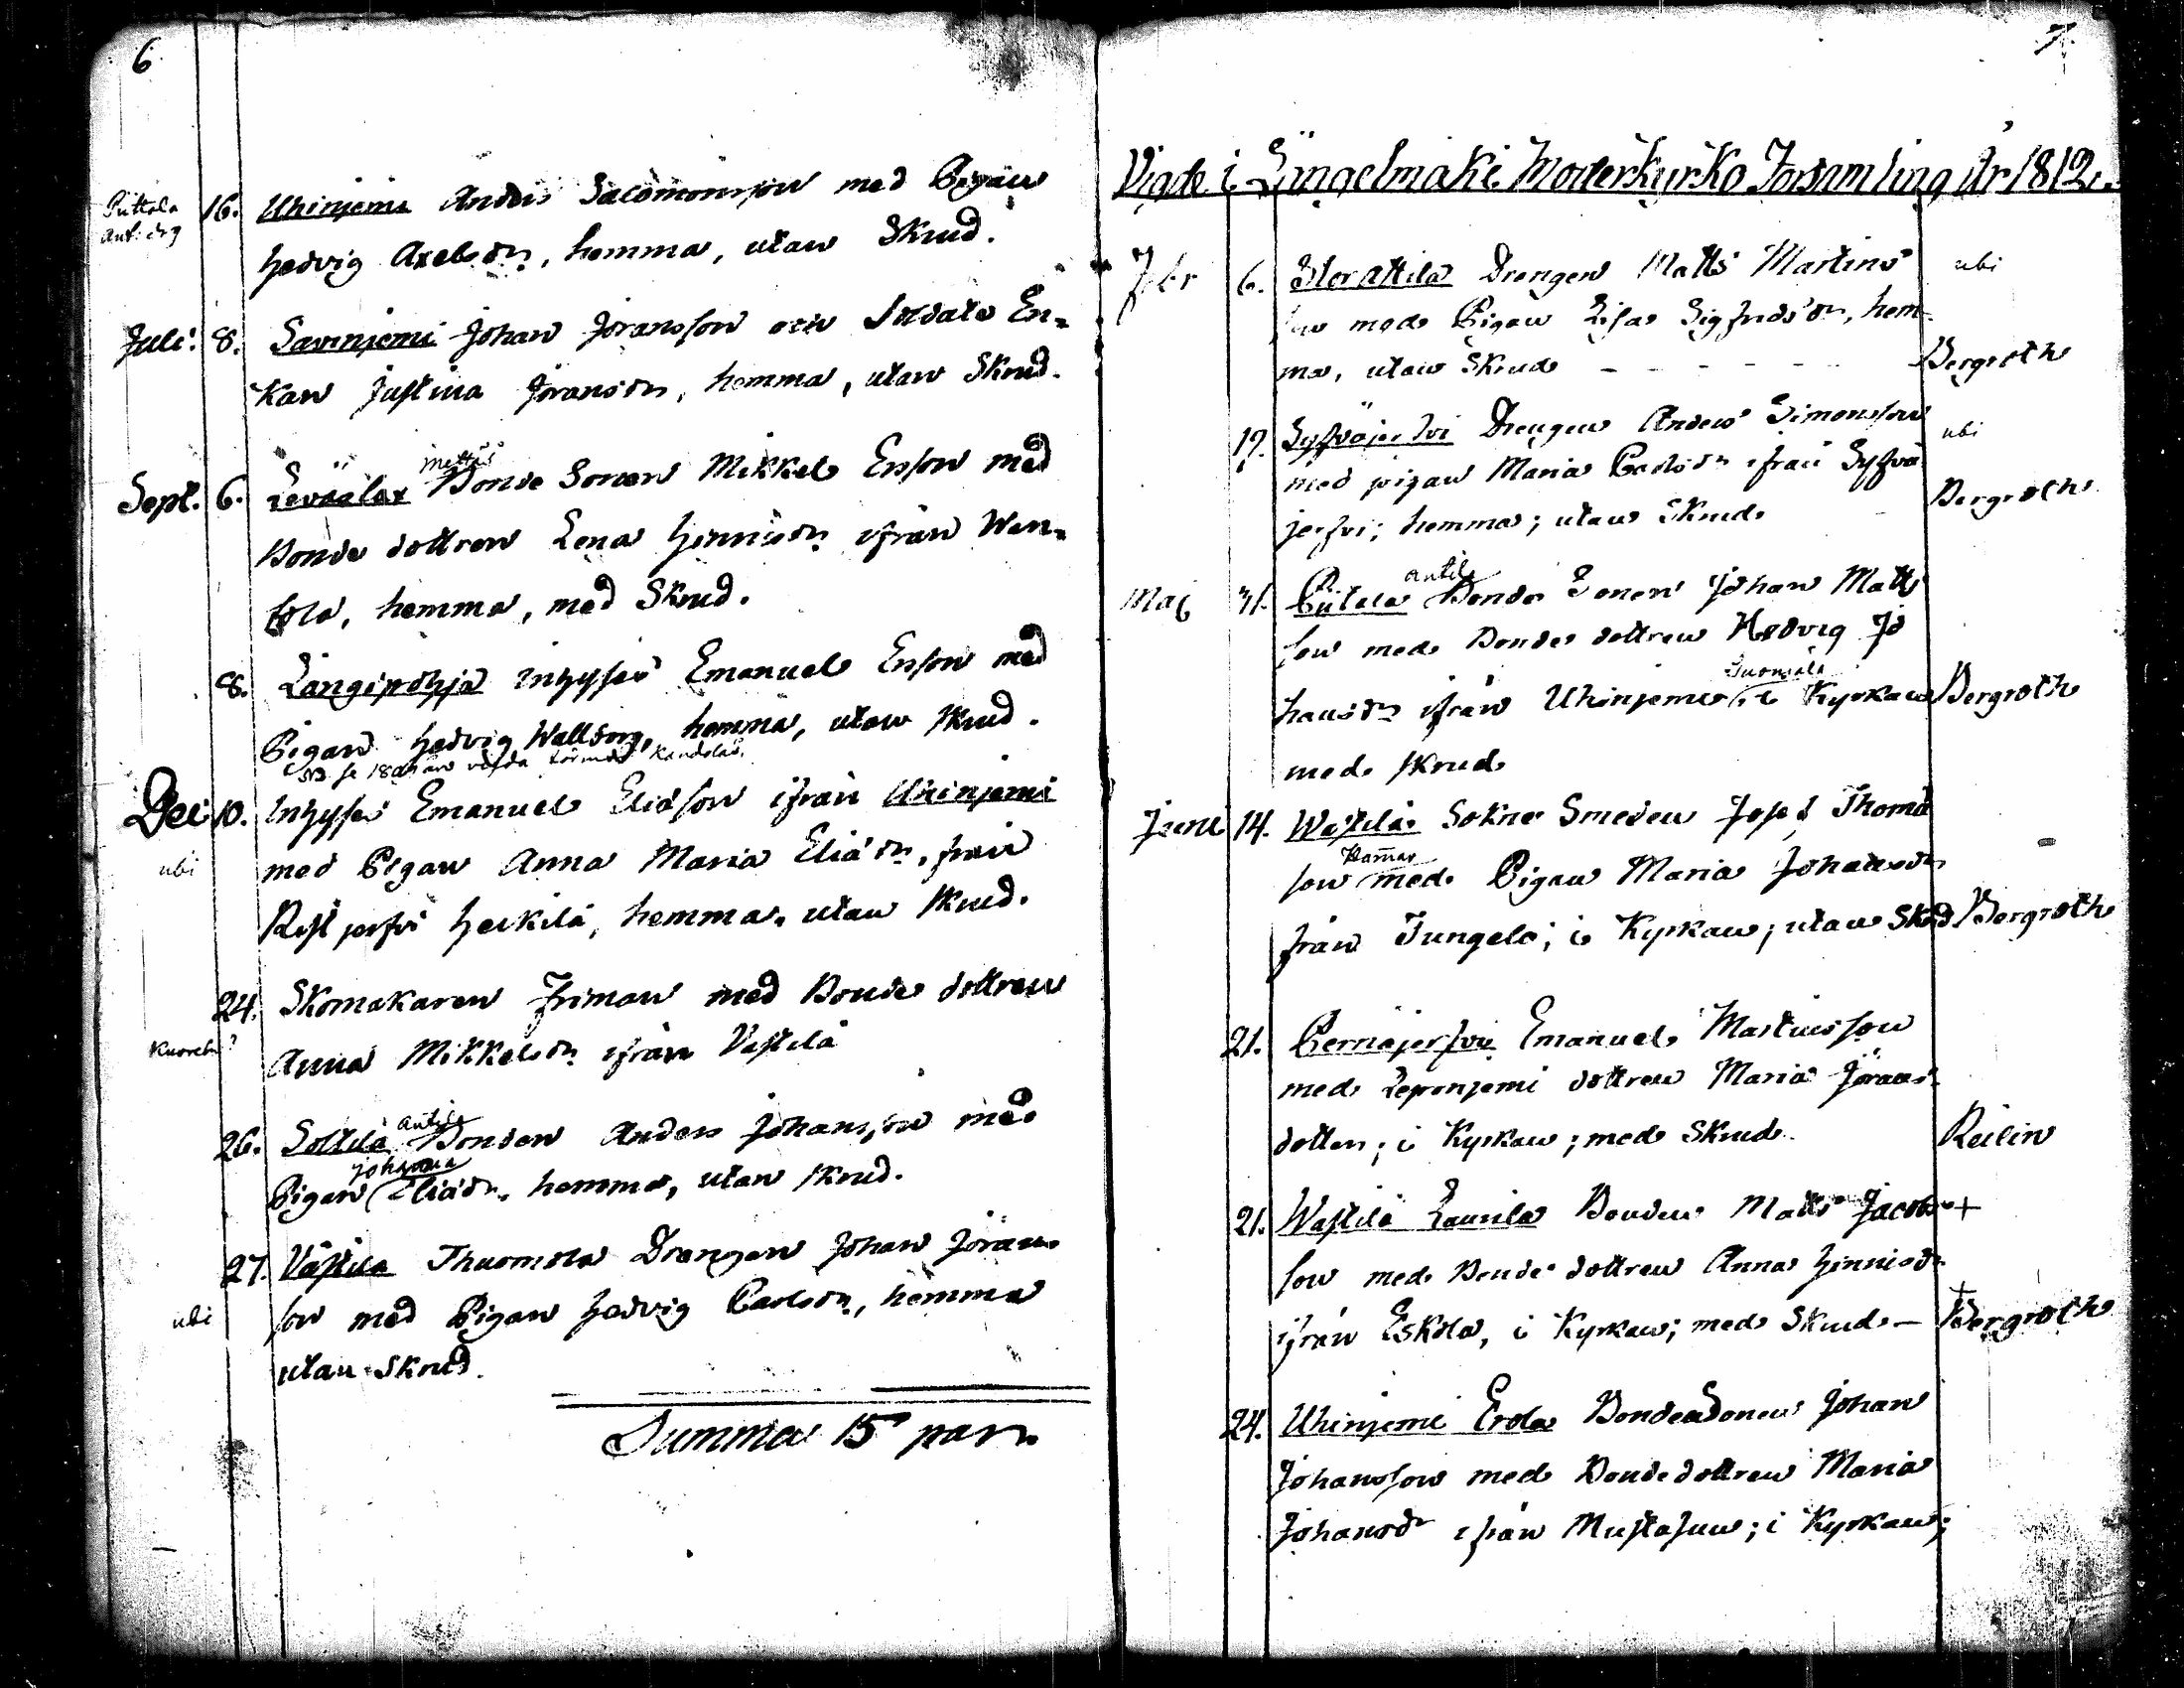 6
Puttola 16. Uhinjemi Anders Salomonsson med Pigan
Hedvig Axelsdr, hemma, utan Skrud.
Juli 8. Savinjemi Johan Jöransson och Soldats En-
kan Justina Jöransdr, hemma, utan Skrud.
Mattas
Sept. 6. Leväslax Bonde Sonen Mikkel Ersson med
Bonde dottren Lena Henricsdr ifrån Wen-
tola, hemma, med Skrud.
8. Längipohja Inhyses Emanuel Ersson med
Pigan Hedvig Wallborg, hemma, utan skrud.
Dec 10. Inhyses Emanuel Eliæson ifrån Uhinjemi
ubi med Pigan Anna Maria Eliædr, från
Ristjerfvi Heikilä, hemma, utan skrud.
24. Skomakaren Friman med Bonde dottren
Anna Mikkelsdr ifrån Västilä
Antila
26. Solttila Bonden Anders Johansson med
Johanna
Pigan Eliædr, hemma, utan skrud.
27. Västila Thuomola Drengen Johan Jörans-
ubi son med Pigan Hedvig Carlsdr, hemma
utan Skrud.
Summa 15 par.
7.
Vigde i Längelmäki Moderkyrko Församling År 1812.
Febr 6. Storattila Drengen Matts Martins ubi
son med Pigan Lisa Sigfridsdr, hem-
ma, utan Skrud - - - - - Bergroth
19. Sysväjerfvi Drengen Anders Simonsson ubi
med pigan Maria Carlsdr ifrån Sysvä
jerfvi; hemma; utan Skrud Bergroth
Antila
Maj 31. Pütala Bonde Sonen Johan Matts
son med Bonde dottren Hedvig Jo
Tuomala
hansdr ifrån Uhinjemi i Kyrkan Bergroth
med skrud
Juni 14. Westilä Sokne Smeden Josef Thomæ
Hamar
son med Pigan Maria Johansdr
från Jungelä; i Kyrkan; utan Skrud Bergroth
21. Pernäjerfvi Emanuel Martinsson
med Leponjemi dottren Maria Jörans-
dotter; i Kyrkan; med Skrud. Reilin
21. Wästilä Laurila Bonden Matts Jacobs +
son med Bonde dottren Anna Henricsdr
ifrån Eskola, i Kyrkan; med Skrud - + Bergroth
24. Uhinjemi Erola Bonde Sonen Johan
Johansson med Bonde dottren Maria
Johansdr ifrån Mustasuu; i Kyrkan;